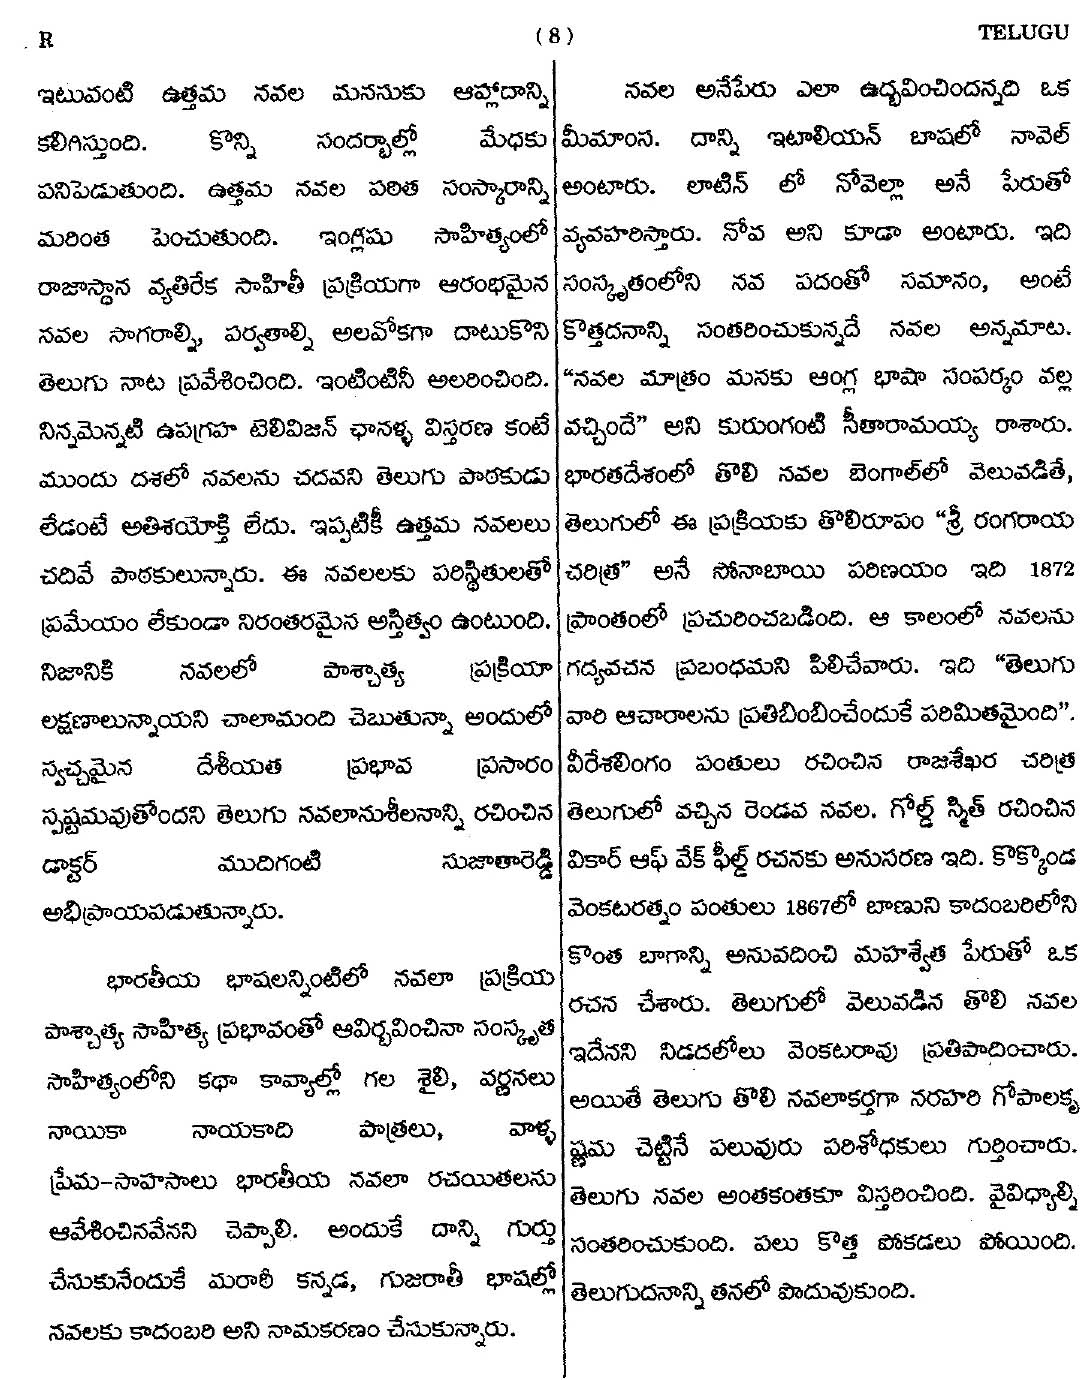 R
(8)
TELUGU
ఇటువంటి ఉత్తమ నవల మనసుకు ఆహ్లాదాన్ని
కలిగిస్తుంది. కొన్ని సందర్భాల్లో మేధకు
పనిపెడుతుంది. ఉత్తమ నవల పఠిత సంస్కారాన్ని
మరింత పెంచుతుంది. ఇంగ్లీషు సాహిత్యంలో
రాజాస్థాన వ్యతిరేక సాహితీ ప్రక్రియగా ఆరంభమైన
నవల సాగరాల్ని, పర్వతాల్ని అలవోకగా దాటుకొని
తెలుగు నాట ప్రవేశించింది. ఇంటింటినీ అలరించింది.
నిన్నమొన్నటి ఉపగ్రహ టెలివిజన్ ఛానళ్ళ విస్తరణ కంటే
ముందు దశలో నవలను చదవని తెలుగు పాఠకుడు
లేడంటే అతిశయోక్తి లేదు. ఇప్పటికీ ఉత్తమ నవలలు
చదివే పాఠకులున్నారు. ఈ నవలలకు పరిస్థితులతో
ప్రమేయం లేకుండా నిరంతరమైన అస్తిత్వం ఉంటుంది.
నిజానికి నవలలో పాశ్చాత్య ప్రక్రియా
లక్షణాలున్నాయని చాలామంది చెబుతున్నా అందులో
స్వచ్చమైన దేశీయత ప్రభావ ప్రసారం
స్పష్టమవుతోందని తెలుగు నవలానుశీలనాన్ని రచించిన
డాక్టర్ ముదిగంటి సుజాతారెడ్డి
అభిప్రాయపడుతున్నారు.
భారతీయ భాషలన్నింటిలో నవలా ప్రక్రియ
పాశ్చాత్య సాహిత్య ప్రభావంతో ఆవిర్భవించినా సంస్కృత
సాహిత్యంలోని కథా కావ్యాల్లో గల శైలి, వర్ణనలు
నాయికా నాయకాది పాత్రలు, వాళ్ళ
ప్రేమ-సాహసాలు భారతీయ నవలా రచయితలను
ఆవేశించినవేనని చెప్పాలి. అందుకే దాన్ని గుర్తు
చేసుకునేందుకే మరాఠీ కన్నడ, గుజరాతీ భాషల్లో
నవలకు కాదంబరి అని నామకరణం చేసుకున్నారు.
నవల అనేపేరు ఎలా ఉద్భవించిందన్నది ఒక
మీమాంస. దాన్ని ఇటాలియన్ బాషలో నావెల్
అంటారు. లాటిన్ లో నోవెల్లా అనే పేరుతో
వ్యవహరిస్తారు. నోవ అని కూడా అంటారు. ఇది
సంస్కృతంలోని నవ పదంతో సమానం, అంటే
కొత్తదనాన్ని సంతరించుకున్నదే నవల అన్నమాట.
“నవల మాత్రం మనకు ఆంగ్ల భాషా సంపర్కం వల్ల
వచ్చిందే” అని కురుంగంటి సీతారామయ్య రాశారు.
భారతదేశంలో తొలి నవల బెంగాల్‌లో వెలువడితే,
తెలుగులో ఈ ప్రక్రియకు తొలిరూపం “శ్రీ రంగరాయ
చరిత్ర” అనే సోనాబాయి పరిణయం ఇది 1872
ప్రాంతంలో ప్రచురించబడింది. ఆ కాలంలో నవలను
గద్యవచన ప్రబంధమని పిలిచేవారు. ఇది “తెలుగు
వారి ఆచారాలను ప్రతిబింబించేందుకే పరిమితమైంది”.
వీరేశలింగం పంతులు రచించిన రాజశేఖర చరిత్ర
తెలుగులో వచ్చిన రెండవ నవల. గోల్డ్ స్మిత్ రచించిన
వికార్ ఆఫ్ వేక్ ఫీల్డ్ రచనకు అనుసరణ ఇది. కొక్కొండ
వెంకటరత్నం పంతులు 1867లో బాణుని కాదంబరిలోని
కొంత బాగాన్ని అనువదించి మహాశ్వేత పేరుతో ఒక
రచన చేశారు. తెలుగులో వెలువడిన తొలి నవల
ఇదేనని నిడదలోలు వెంకటరావు ప్రతిపాదించారు.
అయితే తెలుగు తొలి నవలాకర్తగా నరహరి గోపాలకృ
ష్ణమ చెట్టినే పలువురు పరిశోధకులు గుర్తించారు.
తెలుగు నవల అంతకంతకూ విస్తరించింది. వైవిధ్యాల్ని
సంతరించుకుంది. పలు కొత్త పోకడలు పోయింది.
తెలుగుదనాన్ని తనలో పొదువుకుంది.